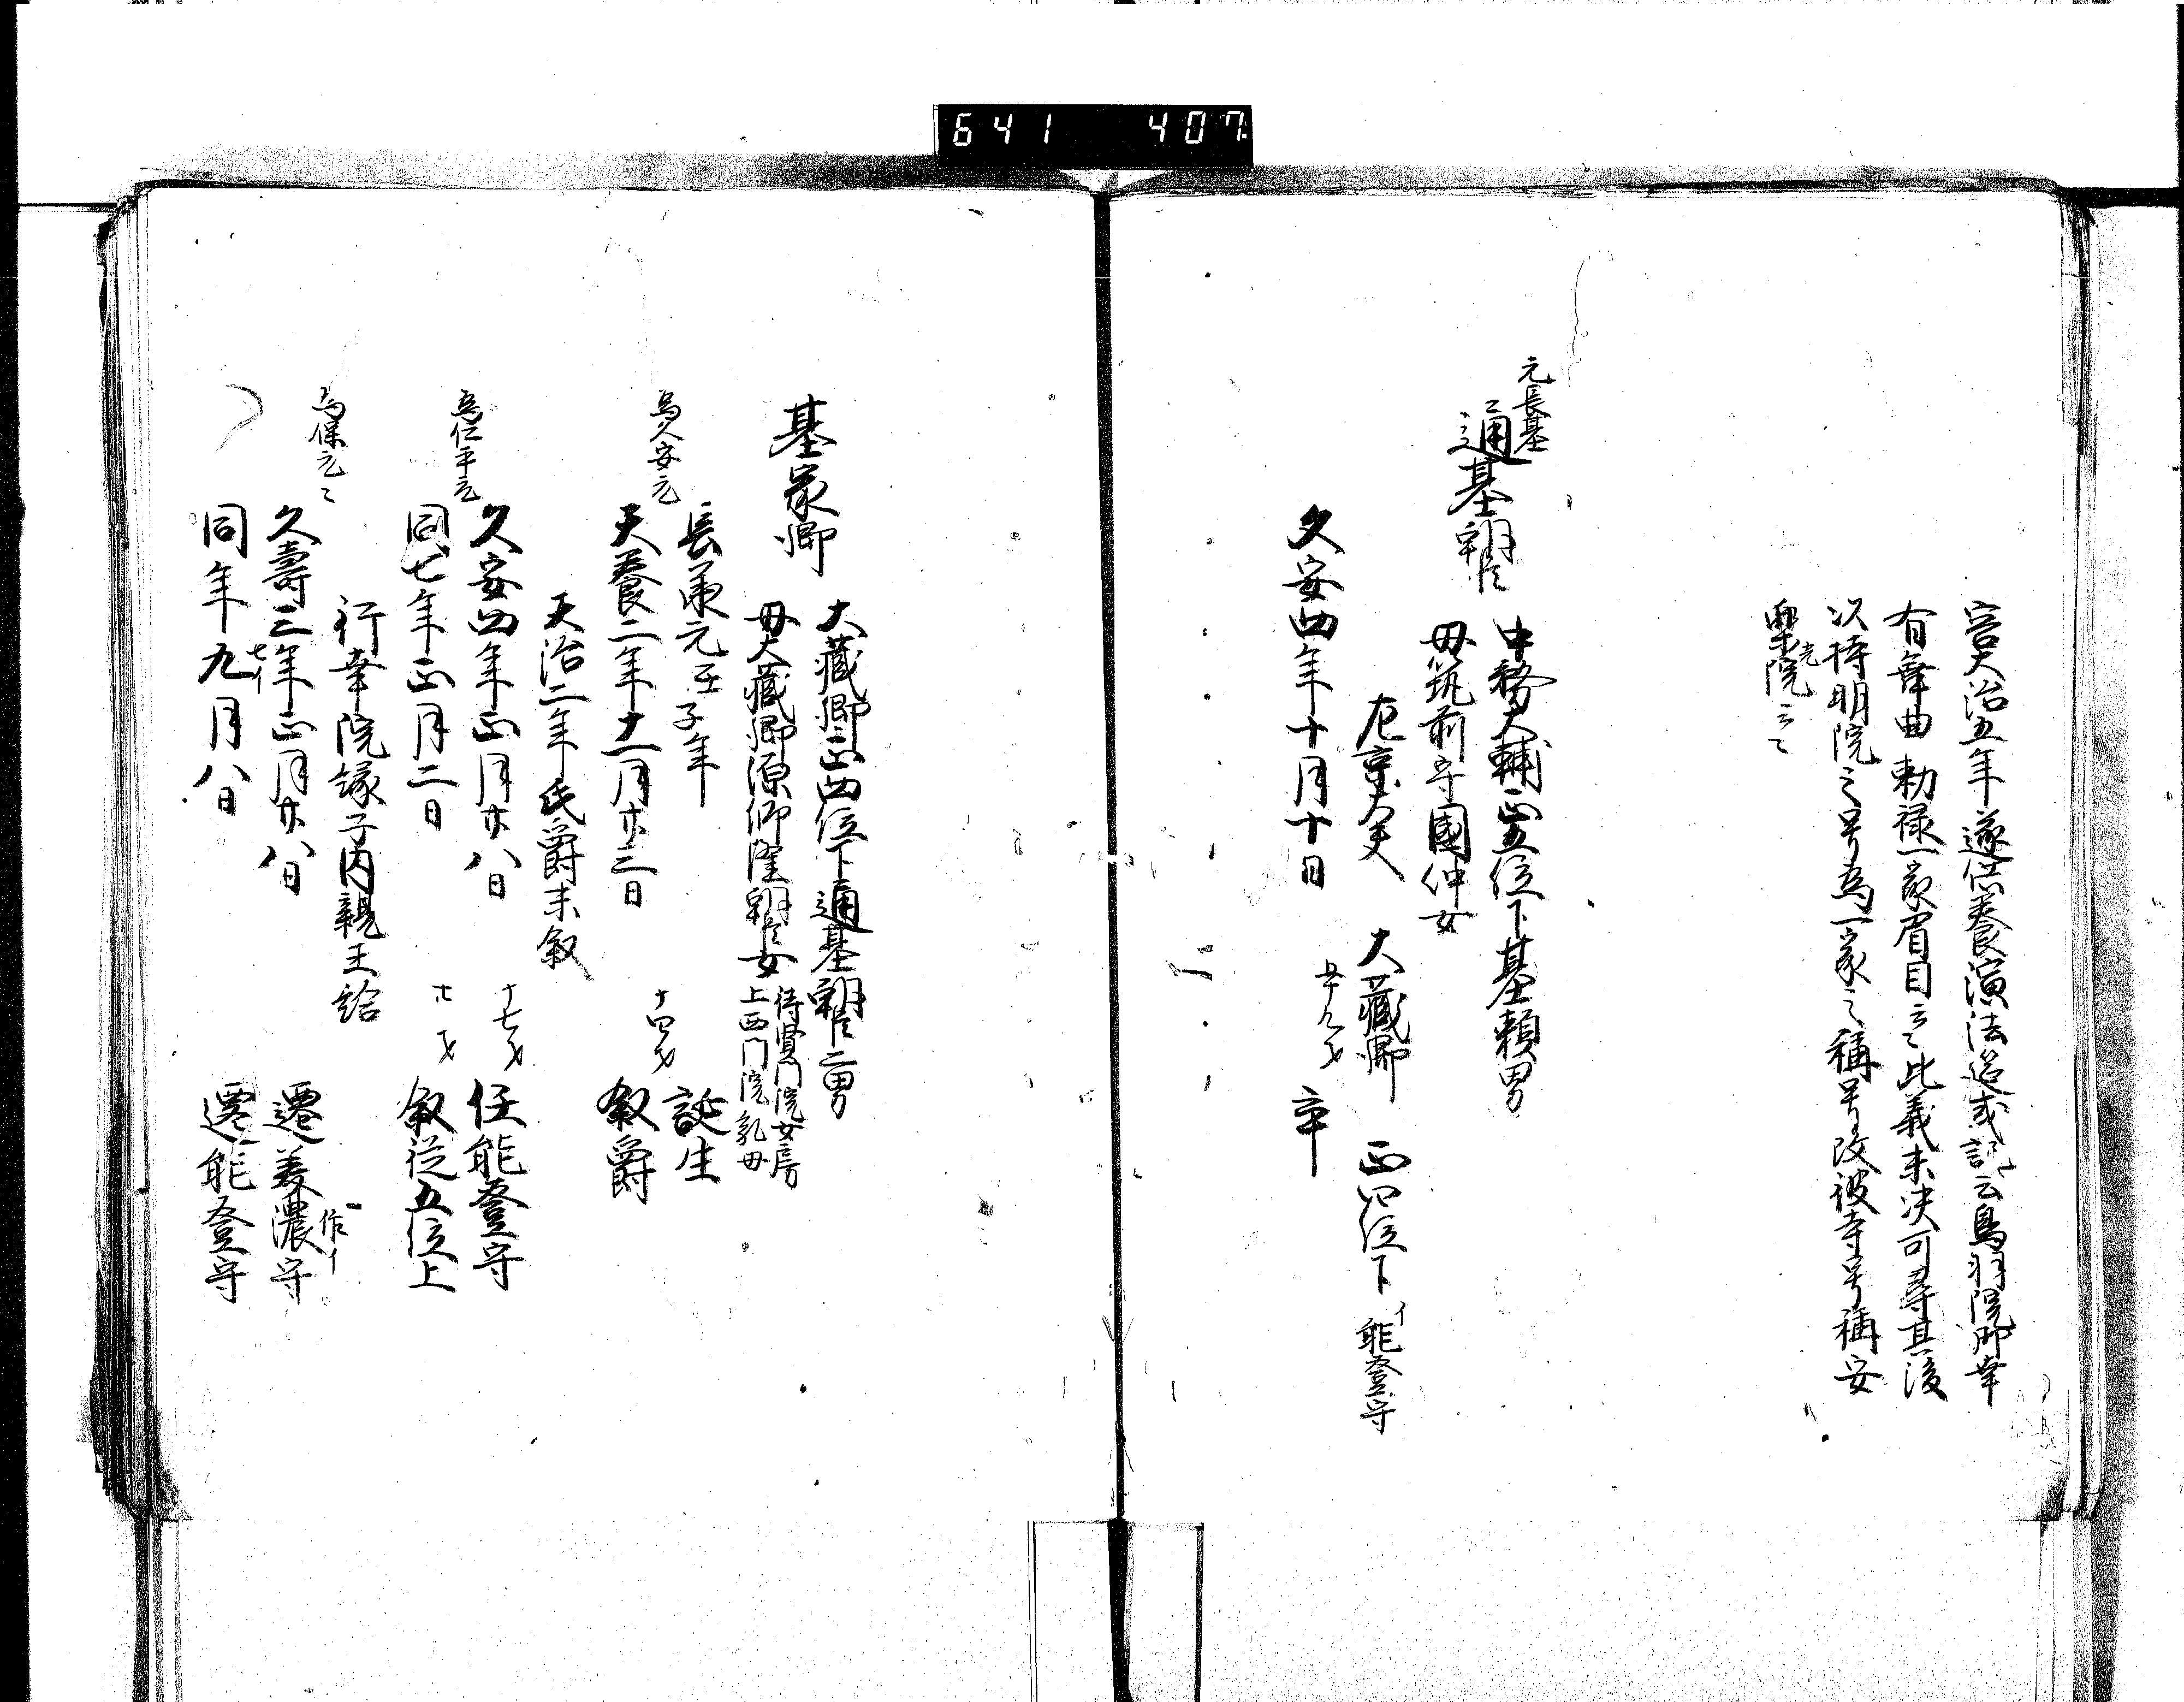 641 407
宮大治五年遂供養演法莚或記云鳥羽院御幸
有舞曲勅禄一家眉目云々此義未决可尋其後
以持明院之号為一家之稱号改彼寺号稱安
樂光院云々
元長基
通基朝臣
中務大輔正五位下基頼男
母筑前守國仲女
左京大夫 大藏卿 正四位下 イ能登守
久安四年十月十日 五十九才 卒
基家卿
大藏卿正四位下通基朝臣二男
母大藏卿源師隆朝臣女 待賢門院女房
上西門院乳母
長承元壬子年 誕生
為久安元
天養二年十一月廿三日 十四才 叙爵
天治二年氏爵未叙
久安四年正月廿八日 十七才 任能登守
為仁平元
同七年正月二日 廿才 叙従五位上
行幸院縁子内親王給
為保元々
久壽三年正月廿八日 遷美濃守
作イ
同年九月八日 遷能登守